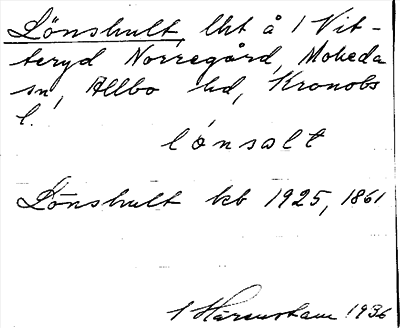 Lönshult, lht å 1 Vit-
teryd Norregård, Moheda
sn, Allbo hd, Kronobs
l.
lónsolt
Lönshult kb 1925, 1861
1936